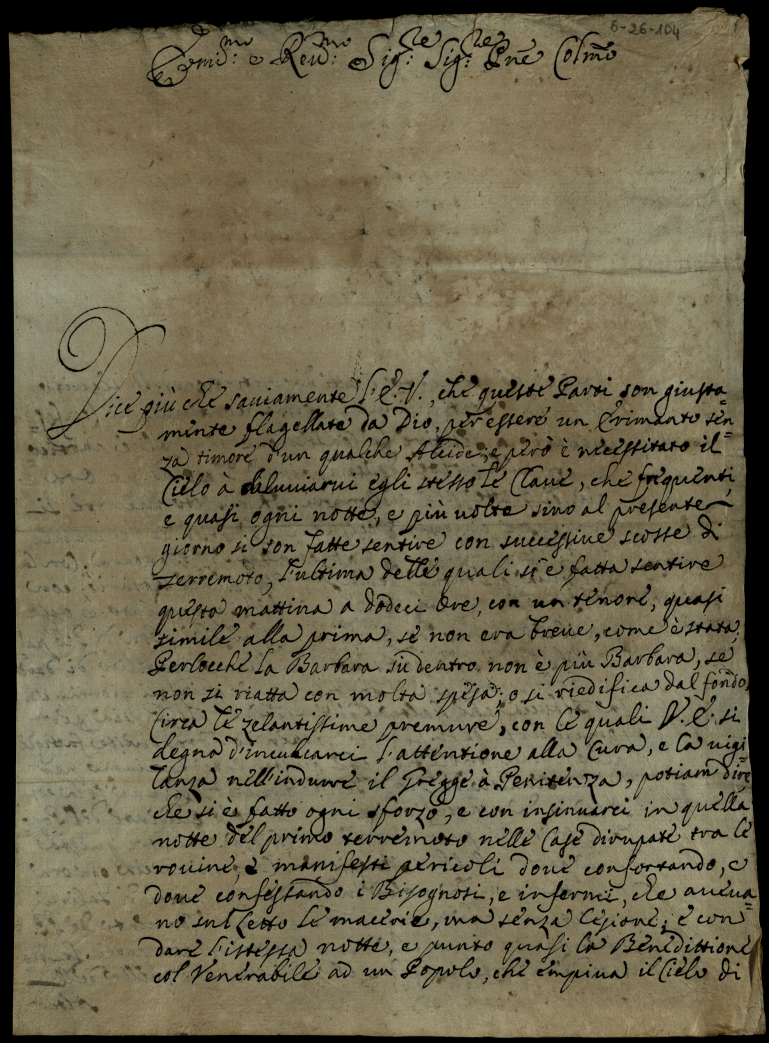 6-26-104
Emi:mo e Reu:mo Sig:re Sig:re Prne Colmo
Dice più che sauiamente l'E.V., che queste Parti son giusta=
mente flagellate da Dio, per essere un Erimanto sen=
za timore d'un qualche Alcide, e però è necessitato il
Cielo à egli stesso le Claue, che frequenti
e quasi ogni notte, e più uolte sino al presente
giorno si son fatte sentire con successiue scosse di
terremoto, l'ultima delle quali si è fatta sentire
questa mattina a dodeci Ore, con un tenore, quasi
simile alla prima, se non era breue, come è stata;
Perlocche la Barbara su dentro non è più Barbara, se
non si riatta con molta spesa; o si riedifica dal fondo.
Circa le zelantissime premure, con le quali V.E. si
degna d'inculcarci l'attentione alla Cura, e la uigi=
lanza nell'indurre il Gregge à Penitenza, potiam dire
che si è fatto ogni sforzo, e con insinuarci in quella
notte del primo terremoto nelle Case dirupate tra le
rouine, e manifesti pericoli doue confortando, e
doue confessando i Bisognosi, e infermi, che aueua=
no sul Letto le macerie, ma senza lesione; e con
dare l'istessa notte, e punto quasi la Benedittione
col Venerabile ad un Popolo, che empiua il Cielo di